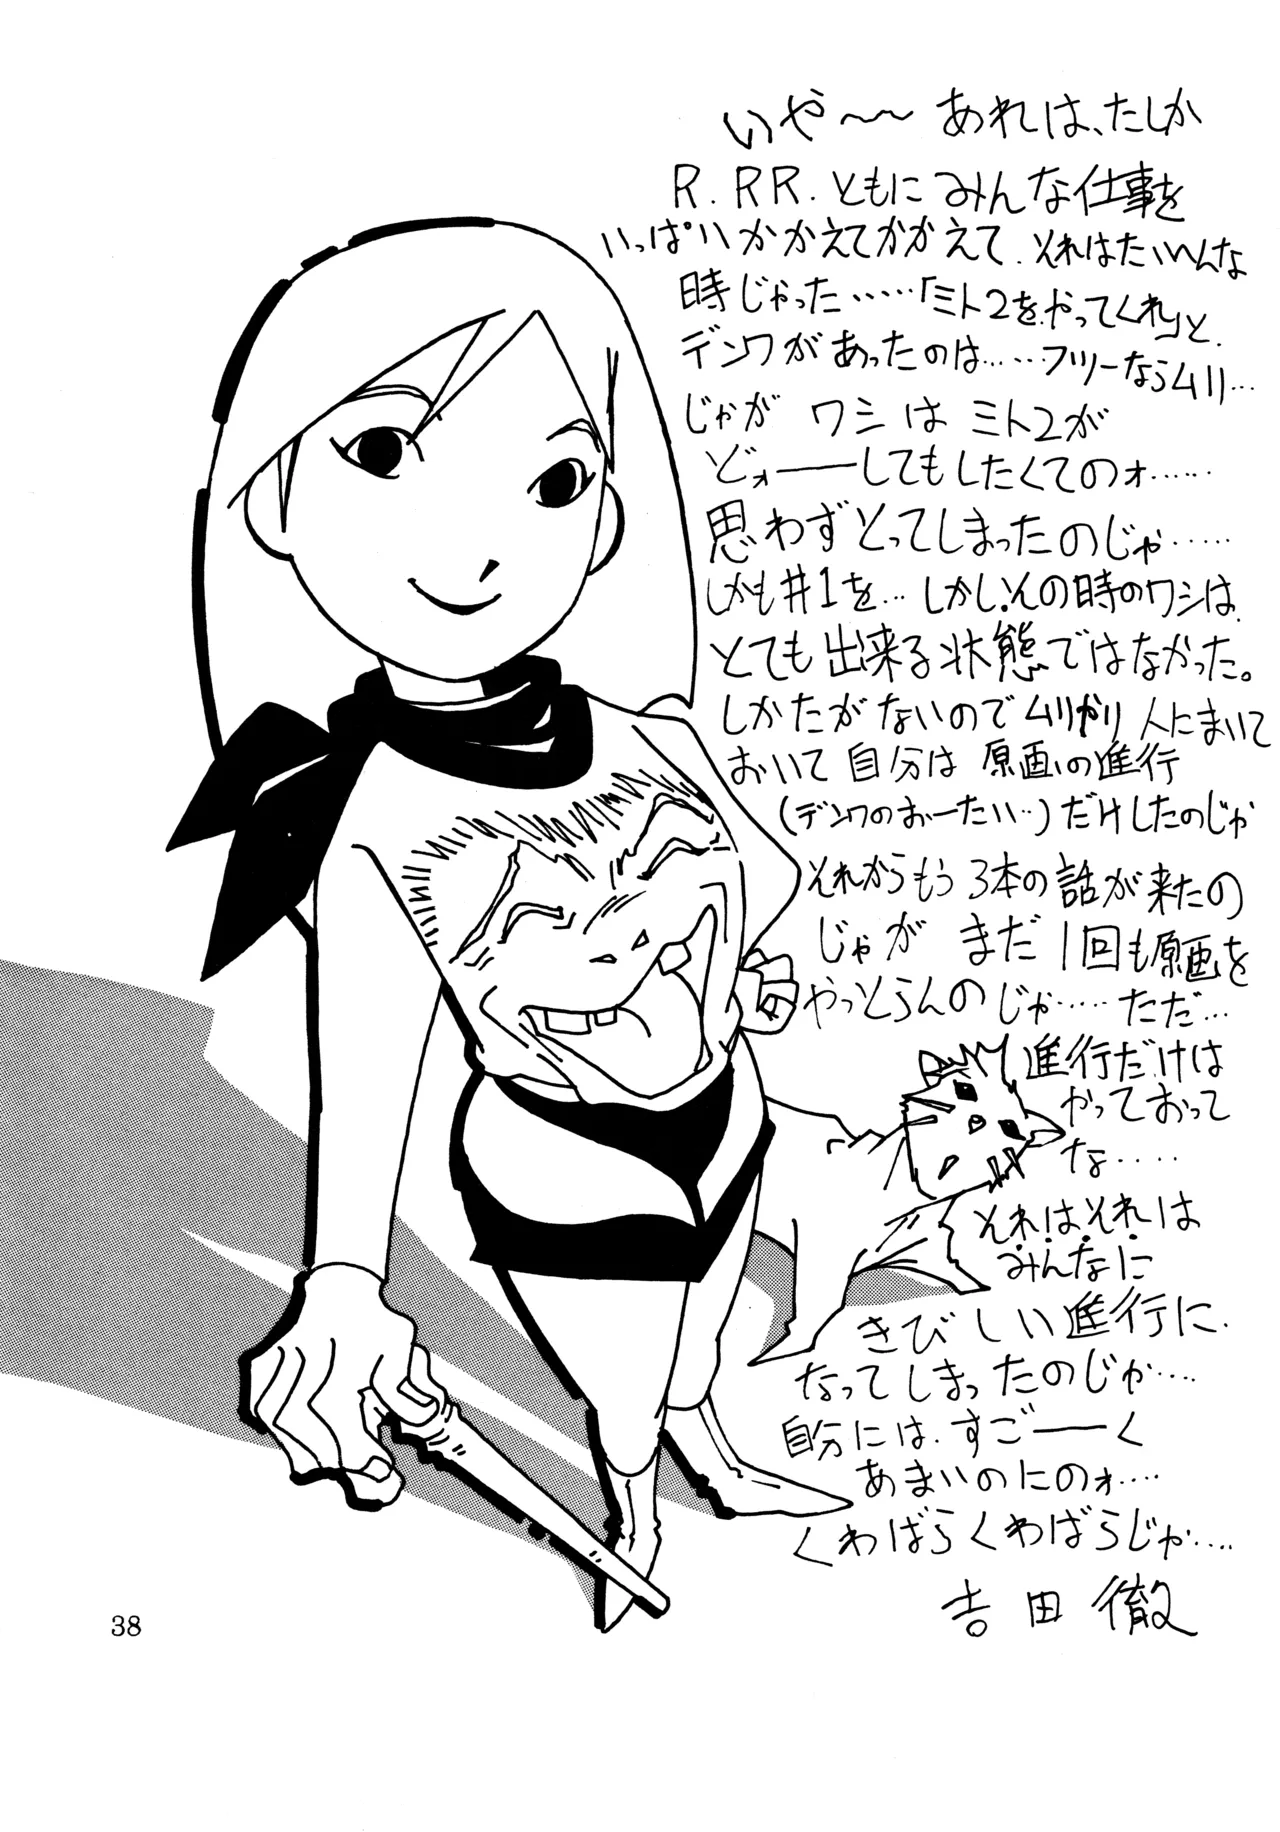 いや〜〜 あれは、たしか
R.RR.ともにみんな仕事を
いっぱいかかえてかかえて.それはたいへんな
時じゃった……「ミト2をやってくれ」と.
デンワがあったのは……フツーならムリ…
じゃが ワシ は ミト2が
どォーーしてもしたくてのォ……
思わずとってしまったのじゃ……
しかも#1を… しかしその時のワシは.
とても出来る状態ではなかった。
しかたがないのでムリやり人にまいて
おいて 自分は 原画の進行
(デンワのおーたい…)だけしたのじゃ
それからもう3本の話が来たの
じゃが まだ 1回も原画を
やっとらんのじゃ……ただ…
進行だけは
やっておって
な……
それはそれは
みんなに
きびしい進行に.
なってしまったのじゃ…
自分には.すごーーく
あまいのにのォ…
くわばらくわばらじゃ….
吉田 徹
38